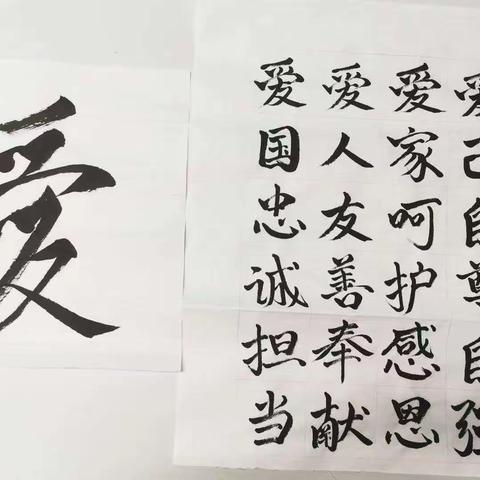 爱己自尊自强
爱家呵护感恩
爱人友善奉献
爱国忠诚担当
爱